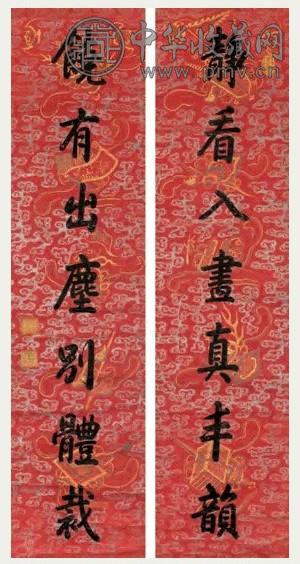 中华收藏网
www.pmv.cn
靜看入畫真丰韻
饒有出塵別體裁